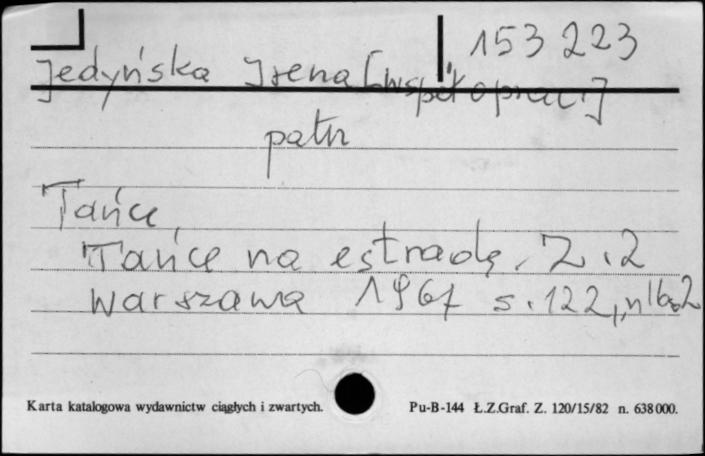 153 223
Jedyńska Irena [współoprac.]
patrz
Tańce
Tańce na estradę. Z. 2
Warszawa 1967 s. 122, nlb. 2
Karta katalogowa wydawnictw ciągłych i zwartych. Pu-B-144 Ł.Z.Graf. Z. 120/15/82 n. 638 000.